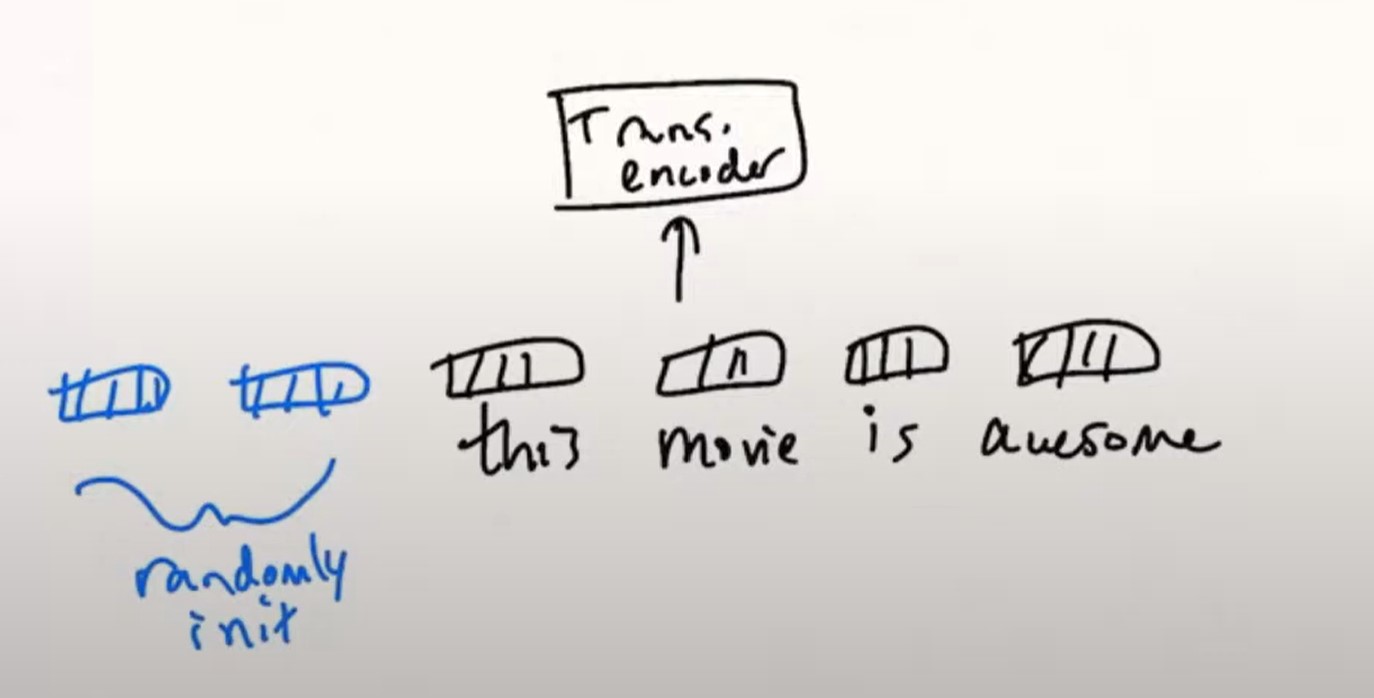 Trans.
encoder
this movie is awesome
randomly
init